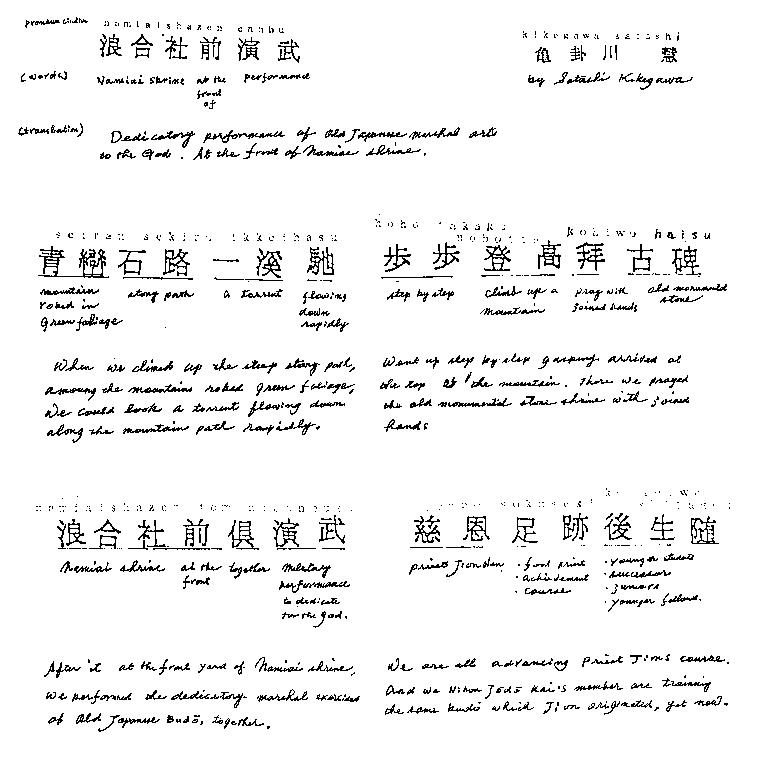 pronunciation namiaishazen enbu
浪合社前演武
(words) Namiai Shrine at the front of performance
(translation) Dedicatory performance of old Japanese marshal arts
to the God. At the front of Namiai shrine.
kikegawa satoshi
亀卦川 慧
by Satoshi Kikegawa
seiran sekiro ikkeihasu
青巒石路一溪馳
mountain stony path a torrent flowing
robed in down
Green foliage rapidly
When we climed up the steep stony path,
amoung the mountains robed green foliage,
we could look a torrent flowing down
along the mountain path rapidly.
koho takaku kohiwo haisu
歩歩登高拜古碑
step by step climb up a pray with old monumental
mountain joined hands stone
Went up step by step gasping arrived at
the top of the mountain. There we prayed
the old monumental stone shrine with joined
hands
namiaishazen tomo
浪合社前俱演武
Namiai shrine at the together military
front performance
to dedicate
for the god.
After it at the front yard of Namiai shrine,
we performed the dedicatory marshal exercises
of Old Japanese Budō, together.
慈恩足跡後生随
priest Jion
· foot print
· achievement
· course
· younger students
· successor
· juniors
· younger fellows.
We are all advancing Priest Jion's course.
And we Nihon Jōdō Kai's member are training
the same budō which Jion originated, yet now.